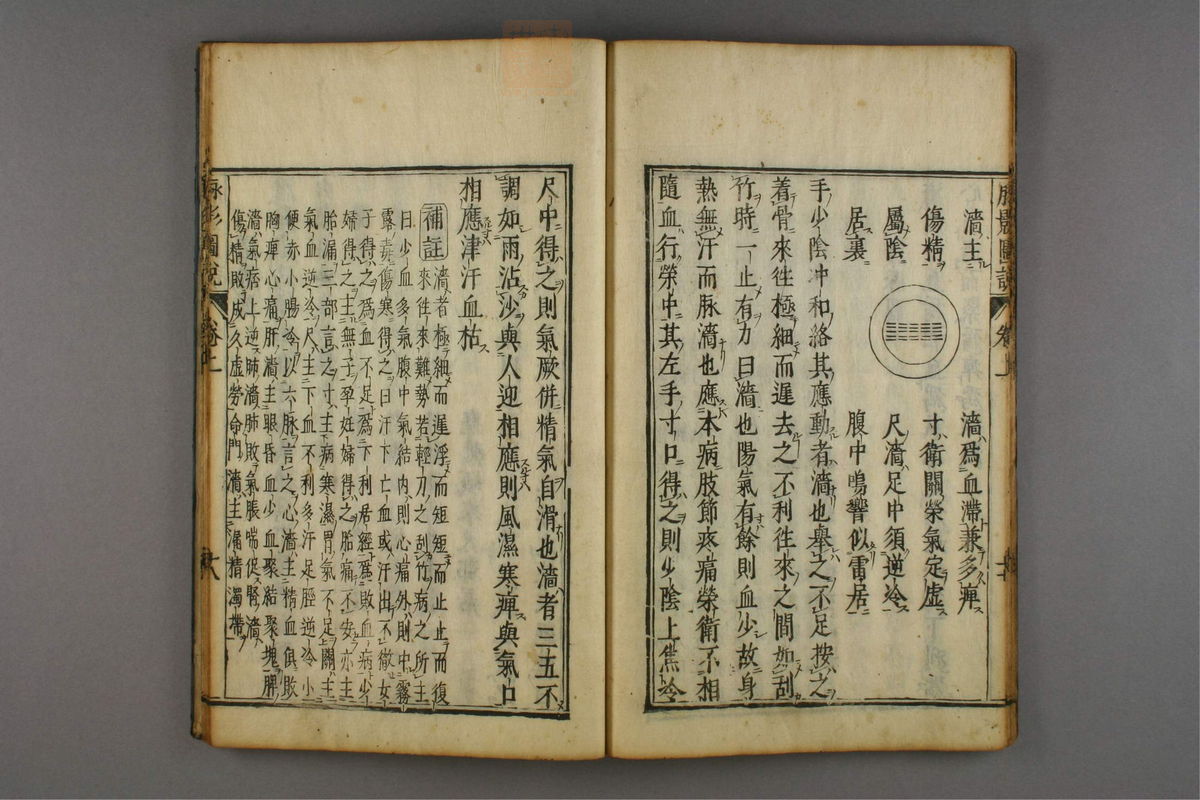 濇主
濇爲血滯兼多痺
傷精
寸衛關榮氣定虛
屬陰
尺濇足中須逆冷
居裏
腹中鳴響似雷居
手少陰冲和絡其應動者濇也舉之不足按之
着骨來徃極細而遲去之不利徃來之間如刮
竹時一止有力曰濇也陽氣有餘則血少故身
熱無汗而脉濇也應本病肢節疼痛榮衛不相
隨血行榮中其左手寸口得之則少陰上焦冷
尺中得之則氣厥併精氣自滑也濇者三五不
調如雨沾沙與人迎相應則風濕寒痺與氣口
相應津汗血枯
補註
濇者極細而遲浮而短短而止止而復
來徃來難勢若輕刀之刮竹病之所主
曰少血多氣腹中氣結内則心痛外則中霧
露毒傷寒得之曰汗下亡血或汗出不徹女
子得之爲血不足爲下利居經爲敗血病少
婦得之主無子孕妊婦得之胎痛不安亦主
胎漏三部言之寸主病寒濕胃氣不足關主
氣血逆冷尺主下血不利多汗足脛逆冷小
便赤小腸冷以六脉言之心濇主精血俱敗
胸痺心痛肝濇主眼昏血少血聚結聚塊脾
濇氣痞上逆肺濇肺敗氣脹喘促腎濇
傷精敗成久虛勞命門濇主漏精濁帶
脉影圖說
卷上
十八